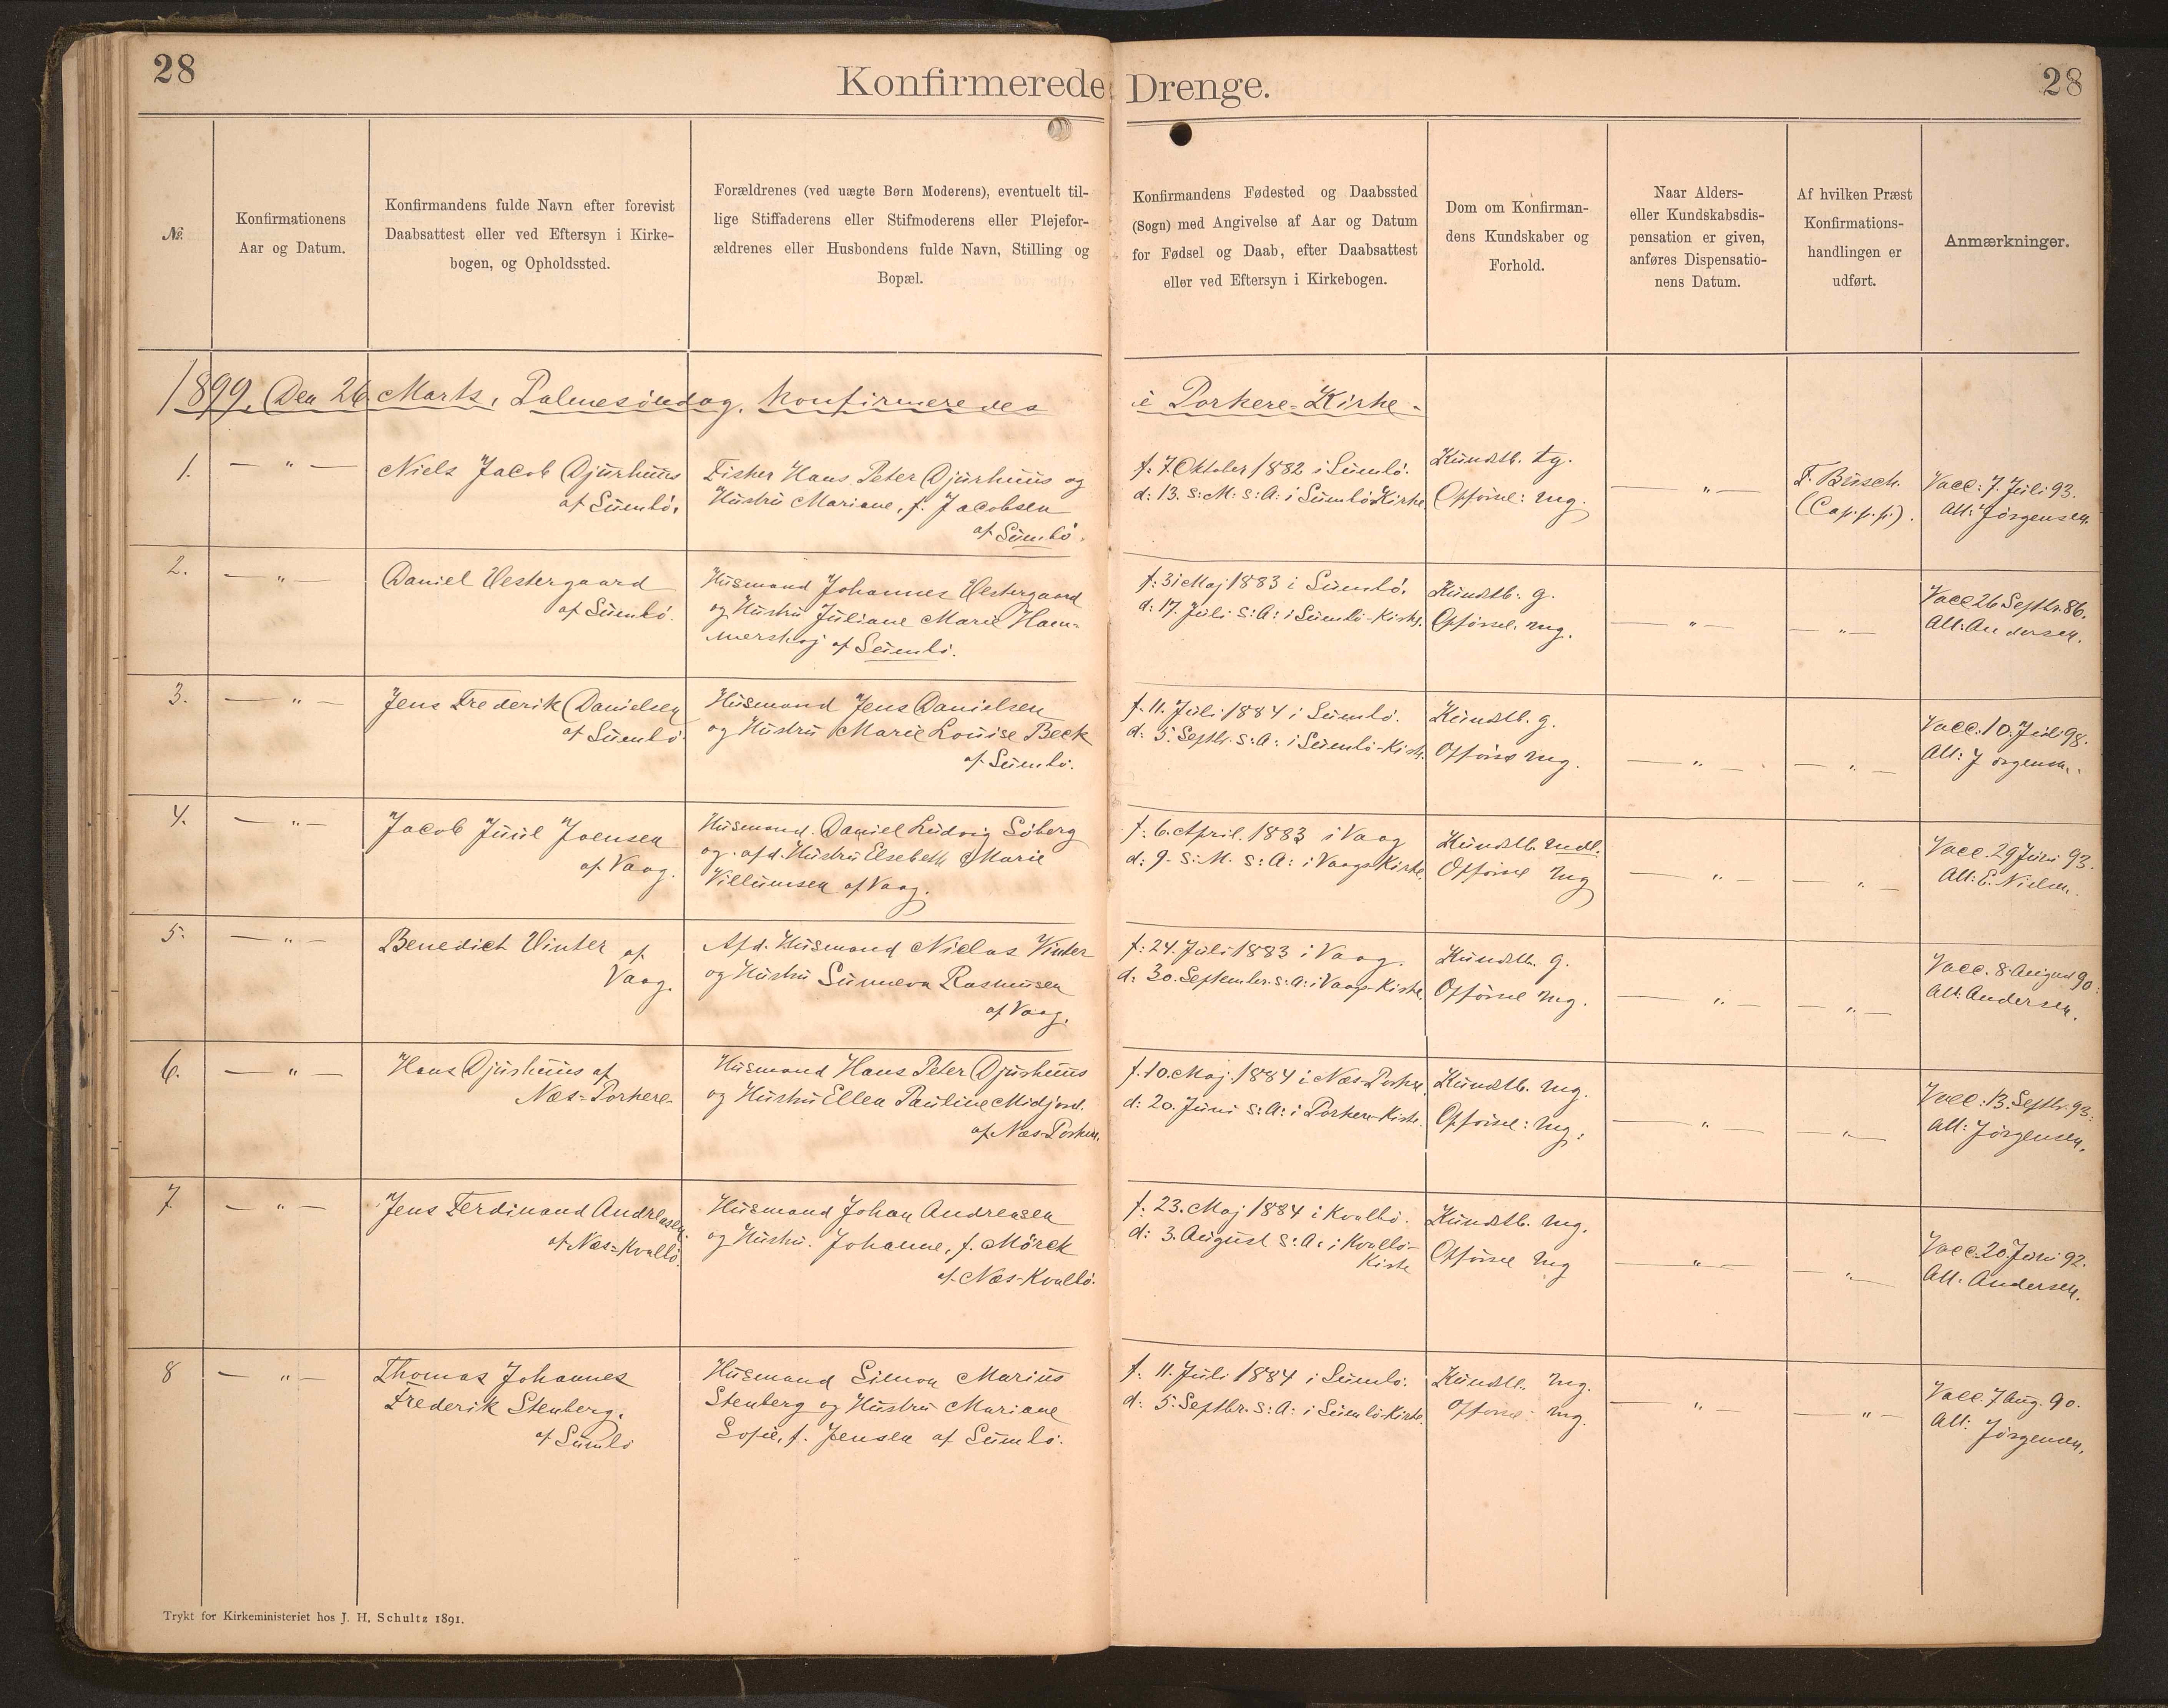 28
Konfirmerede Drenge.
28
No.
Konfirmationens
Aar og Datum.
Konfirmandens fulde Navn efter forevist
Daabsattest eller ved Eftersyn i Kirke-
bogen, og Opholdssted.
Forældrenes (ved uægte Børn Moderens), eventuelt til-
lige Stiffaderens eller Stifmoderens eller Plejefor-
ældrenes eller Husbondens fulde Navn, Stilling og
Bopæl.
Konfirmandens Fødested og Daabssted
(Sogn) med Angivelse af Aar og Datum
for Fødsel og Daab, efter Daabsattest
eller ved Eftersyn i Kirkebogen.
Dom om Konfirman-
dens Kundskaber og
Forhold.
Naar Alders-
eller Kundskabsdis-
pensation er given,
anføres Dispensatio-
nens Datum.
Af hvilken Præst
Konfirmations-
handlingen er
udført.
Anmærkninger.
1899. Den 26. Marts, Palmesöndag, konfirmeredes i Porkere-Kirke.
1.
— " —
Niels Jacob Djurhuus
af Sumbö.
Fisker Hans Peter Djurhuus og
Hustru Mariane, f. Jacobsen
af Sumbö.
f: 7. Oktober 1882 i Sumbö.
d: 13. s: M: s: A: i Sumbö Kirke
Kundsk. tg.
Opförsel: mg.
— " —
F. Busch.
(Cap. p. p.).
Vacc: 7. Juli 93.
Att: Jörgensen.
2.
— " —
Daniel Vestergaard
af Sumbö.
Husmand Johannes Vestergaard
og Hustru Juliane Marie Ham-
mershaj af Sumbö.
f: 31 Maj 1883 i Sumbö.
d: 17. Juli s: A: i Sumbö-Kirke.
Kundsk: g.
Opförsel. mg.
— " —
— " —
Vacc 26 Septbr. 86.
Att: Andersen.
3.
— " —
Jens Frederik Danielsen
af Sumbö.
Husmand Jens Danielsen
og Hustru Marie Louise Beck
af Sumbö.
f. 11. Juli 1884 i Sumbö.
d: 5. Septbr. s: A: i Sumbö-Kirke.
Kundsk. g.
Opförs mg.
— " —
— " —
Vacc. 10. Juli 98.
Att: Jörgensen.
4.
— " —
Jacob Juul Joensen
af Vaag.
Husmand. Daniel Ludvig Söberg
og afd. Hustru Elsebeth Marie
Villumsen af Vaag.
f: 6. April. 1883 i Vaag
d: 9. s: M. s: A: i Vaags Kirke.
Kundsk. mdl.
Opförsel mg
— " —
— " —
Vacc. 29 Juni 93.
Att: E. Nielsen.
5.
— " —
Benedict Vinter af
Vaag.
Afd. Husmand Niclas Vinter
og Hustru Sunneva Rasmusen
af Vaag.
f: 24. Juli 1883 i Vaag.
d: 30. September. s: A: i Vaags-Kirke.
Kundsk. g.
Opförsel mg.
— " —
— " —
Vacc. 8. August 90:
Att: Andersen.
6.
— " —
Hans Djurhuus af
Næs-Porkere.
Husmand Hans Peter Djurhuus
og Hustru Ellen Pauline Midjord.
af Næs-Porkere.
f. 10. Maj. 1884 i Næs-Porkere.
d: 20. Juni s: A: i Porkere-Kirke.
Kundsk. mg.
Opförsel: mg:
— " —
— " —
Vacc: 13. Septbr. 93:
Att: Jörgensen.
7.
— " —
Jens Ferdinand Andreasen
af Næs-Kvalbö.
Husmand Johan Andreasen
og Hustru. Johanne, f. Mörck
af Næs-Kvalbö.
f. 23. Maj 1884 i Kvalbö.
d: 3. August s: A: i Kvalbö-
Kirke
Kundsk. mg.
Opförsel mg
— " —
— " —
Vacc. 20. Juni 92.
Att. Andersen.
8
— " —
Thomas Johannes
Frederik Stenberg.
af Sumbö
Husmand Simon Marius
Stenberg og Hustru Mariane
Sofie, f. Jensen af Sumbö.
f. 11. Juli 1884 i Sumbö.
d: 5. Septbr. s: A: i Sumbö-Kirke.
Kundsk. mg.
Opförsel: mg.
— " —
— " —
Vacc. 7 Aug. 90.
Att: Jörgensen.
Trykt for Kirkeministeriet hos J. H. Schultz 1891.